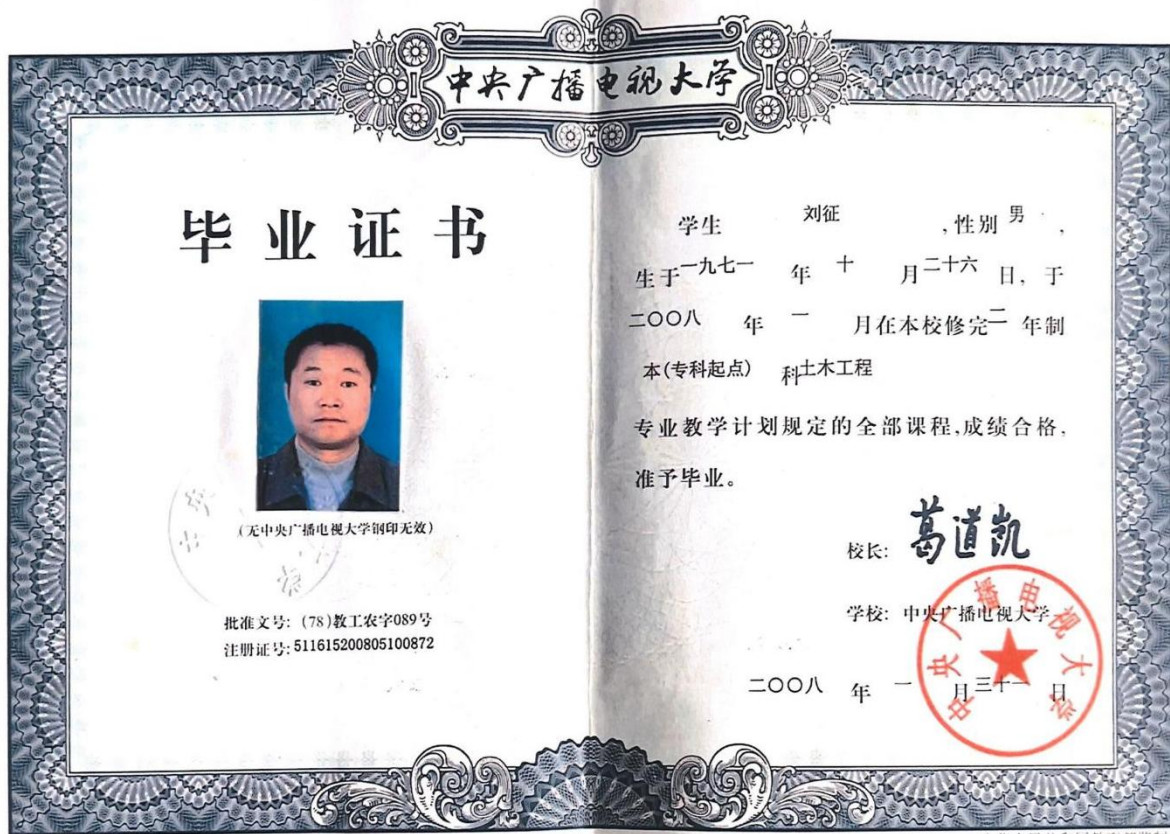 中央广播电视大学
毕业证书
(无中央广播电视大学钢印无效)
批准文号: (78)教工农字089号
注册证号: 511615200805100872
学生 刘征 ,性别 男 ,
生于 一九七一 年 十 月 二十六 日, 于
二〇〇八 年 一 月在本校修完 二 年制
本(专科起点) 科 土木工程
专业教学计划规定的全部课程,成绩合格,
准予毕业。
校长: 葛道凯
学校: 中央广播电视大学
二〇〇八 年 一 月 三十一 日
中央广播电视大学